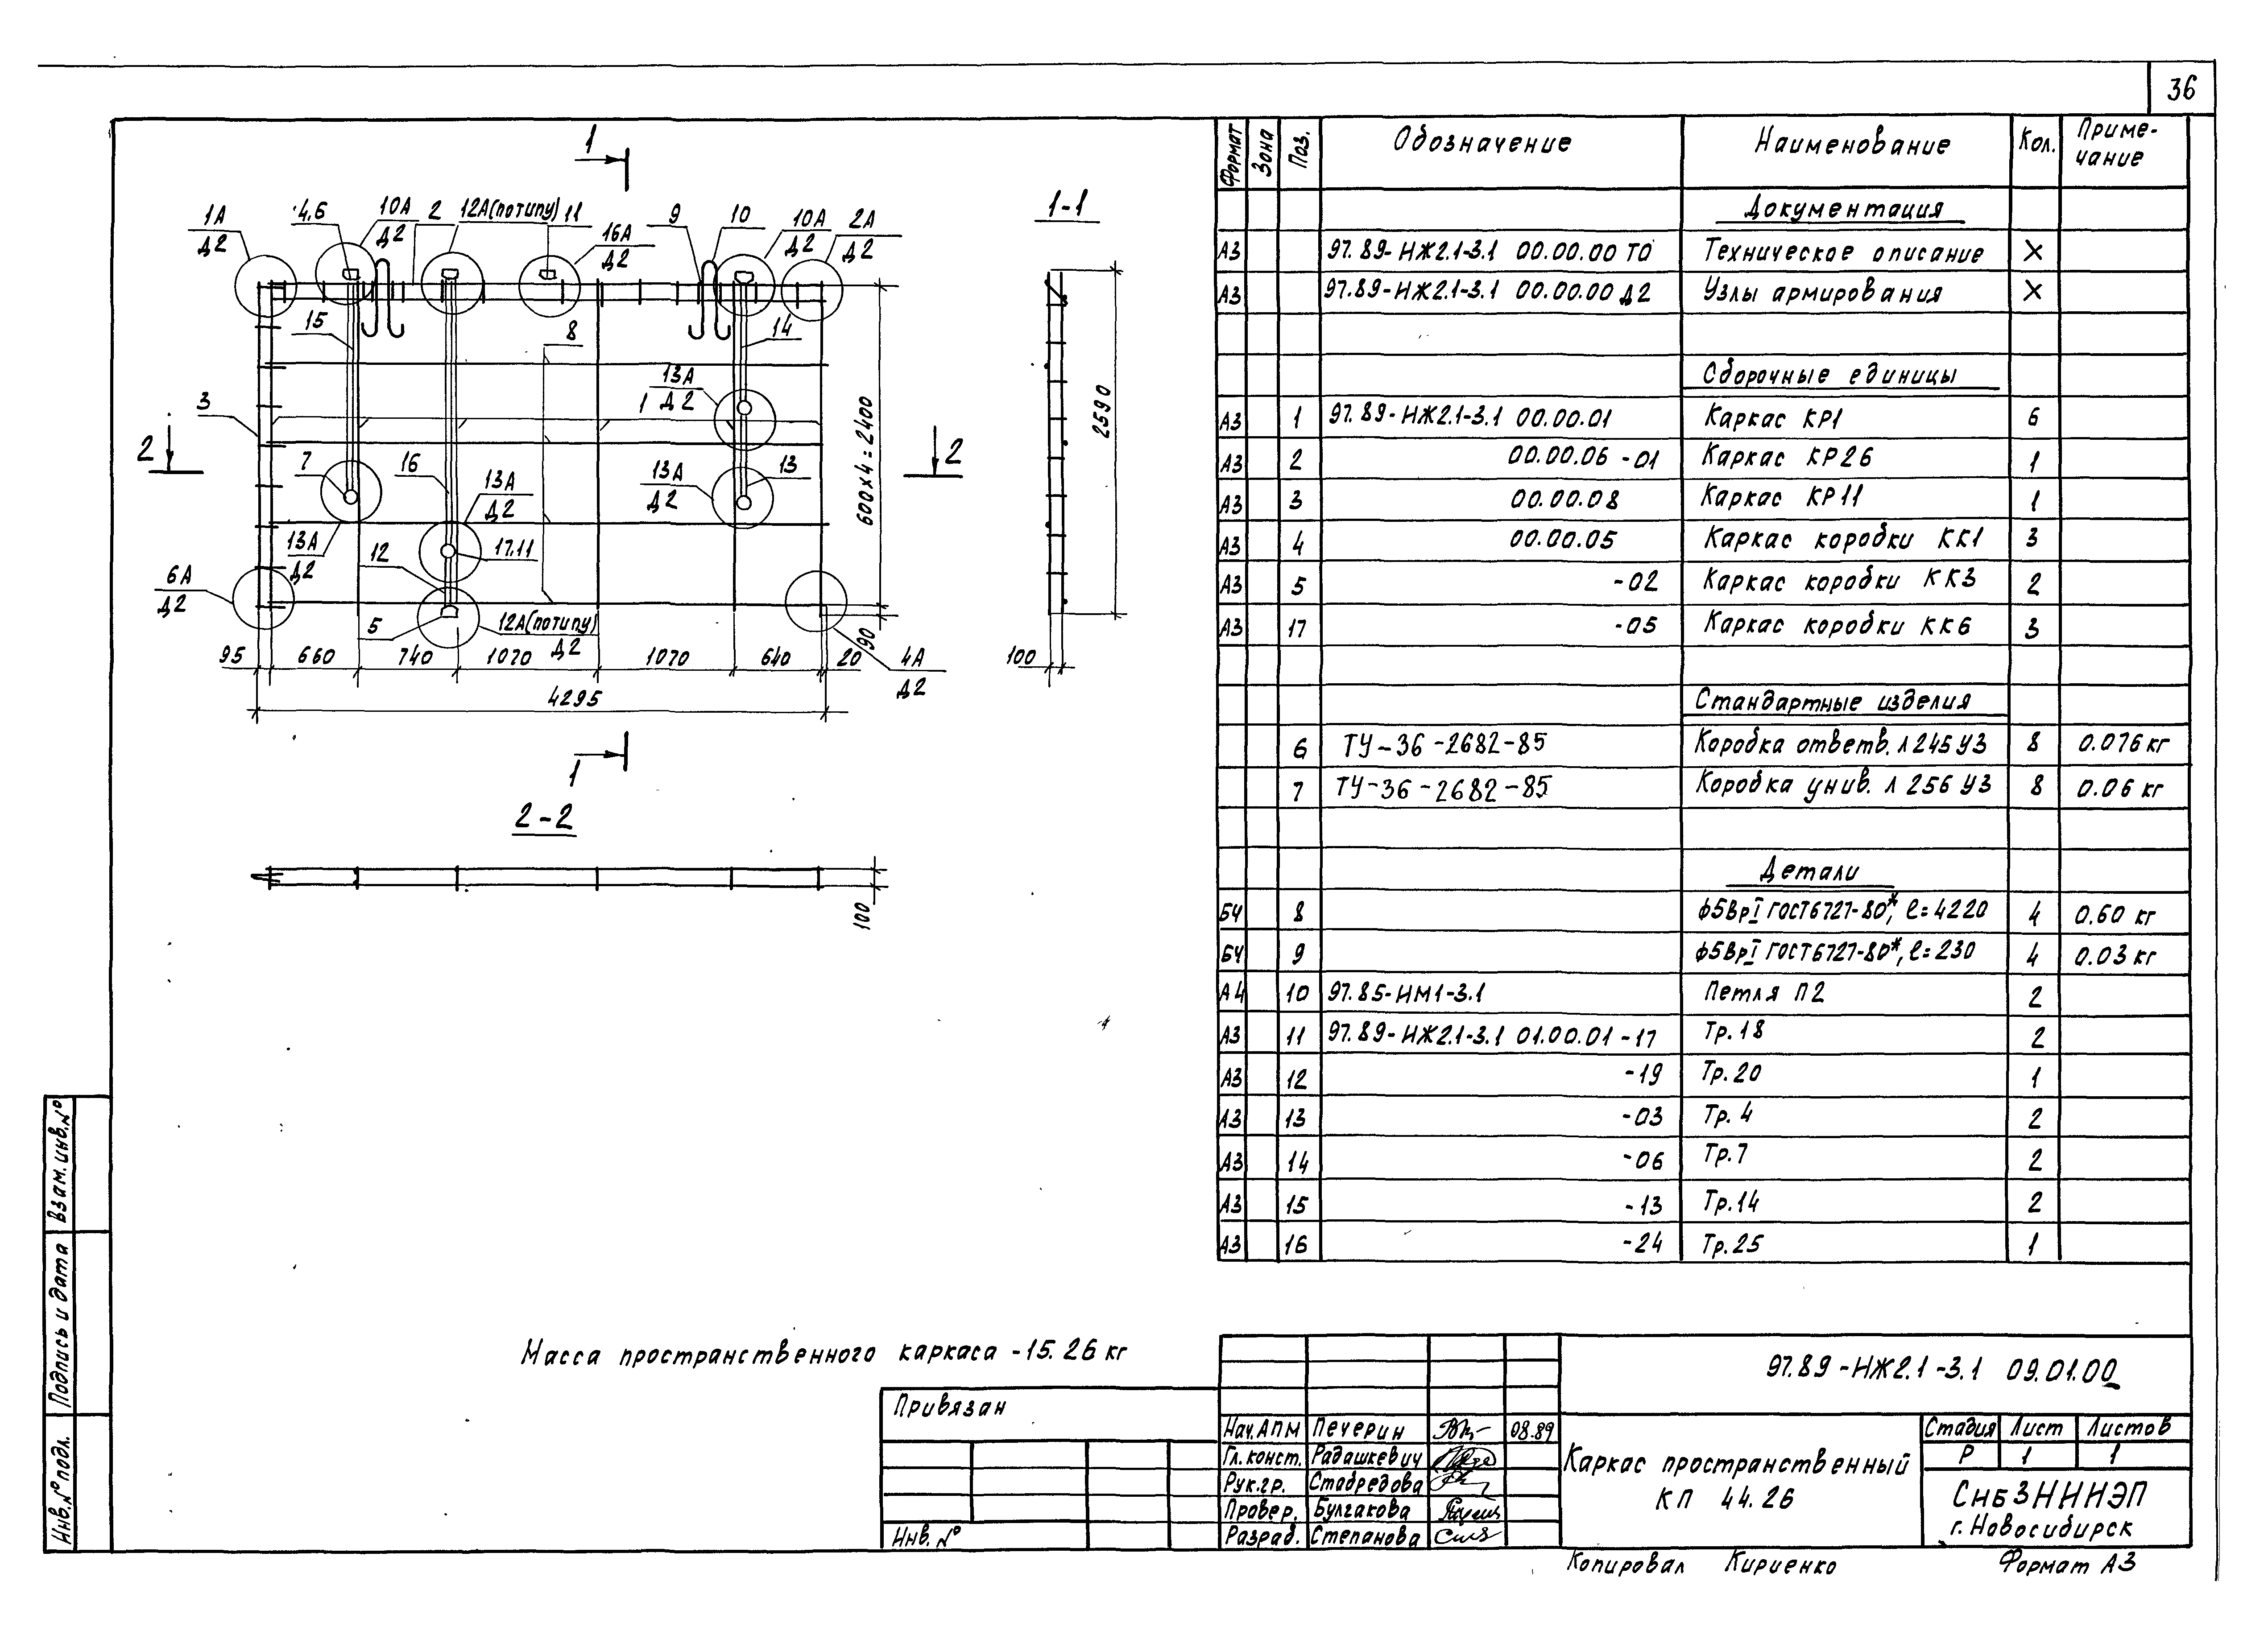 36
1
1А
Д2
4,6
10А
Д2
2
12А(потипу)
11
16А
Д2
9
10
10А
Д2
2А
Д2
1-1
15
8
14
13А
1 Д2
3
2
2
7
16
13А
Д2
13А
Д2
13
600х4=2400
2590
13А
Д2
12
17.11
6А
Д2
5
12А(потипу)
Д2
90
4А
Д2
95 660 740 1070 1070 640 20
100
4295
1
2-2
100
Формат Зона Поз. Обозначение Наименование Кол. Приме-
чание
Документация
А3 97.89-НЖ2.1-3.1 00.00.00 ТО Техническое описание Х
А3 97.89-НЖ2.1-3.1 00.00.00 Д2 Узлы армирования Х
Сборочные единицы
А3 1 97.89-НЖ2.1-3.1 00.00.01 Каркас КР1 6
А3 2 00.00.06 -01 Каркас КР26 1
А3 3 00.00.08 Каркас КР11 1
А3 4 00.00.05 Каркас коробки КК1 3
А3 5 -02 Каркас коробки КК3 2
А3 17 -05 Каркас коробки КК6 3
Стандартные изделия
6 ТУ-36-2682-85 Коробка ответв. Л245 У3 8 0.076 кг
7 ТУ-36-2682-85 Коробка унив. Л 256 У3 8 0.06 кг
Детали
БЧ 8 ф5ВрI ГОСТ6727-80*, l=4220 4 0.60 кг
БЧ 9 ф5ВрI ГОСТ6727-80*, l=230 4 0.03 кг
А4 10 97.85-НМ1-3.1 Петля П2 2
А3 11 97.89-НЖ2.1-3.1 01.00.01 -17 Тр.18 2
А3 12 -19 Тр.20 1
А3 13 -03 Тр.4 2
А3 14 -06 Тр.7 2
А3 15 -13 Тр.14 2
А3 16 -24 Тр.25 1
Масса пространственного каркаса -15.26 кг
Привязан
Инв.№
97.89-НЖ2.1-3.1 09.01.00
Нач.АПМ Печерин 08.89
Гл.конст. Радашкевич
Рук.гр. Стабредова
Провер. Булгакова
Разраб. Степанова
Каркас пространственный
КП 44.26
Стадия Лист Листов
Р 1 1
СибЗНИИЭП
г.Новосибирск
Копировал Кириенко Формат А3
Взам.инв.№
Подпись и дата
Инв.№подл.